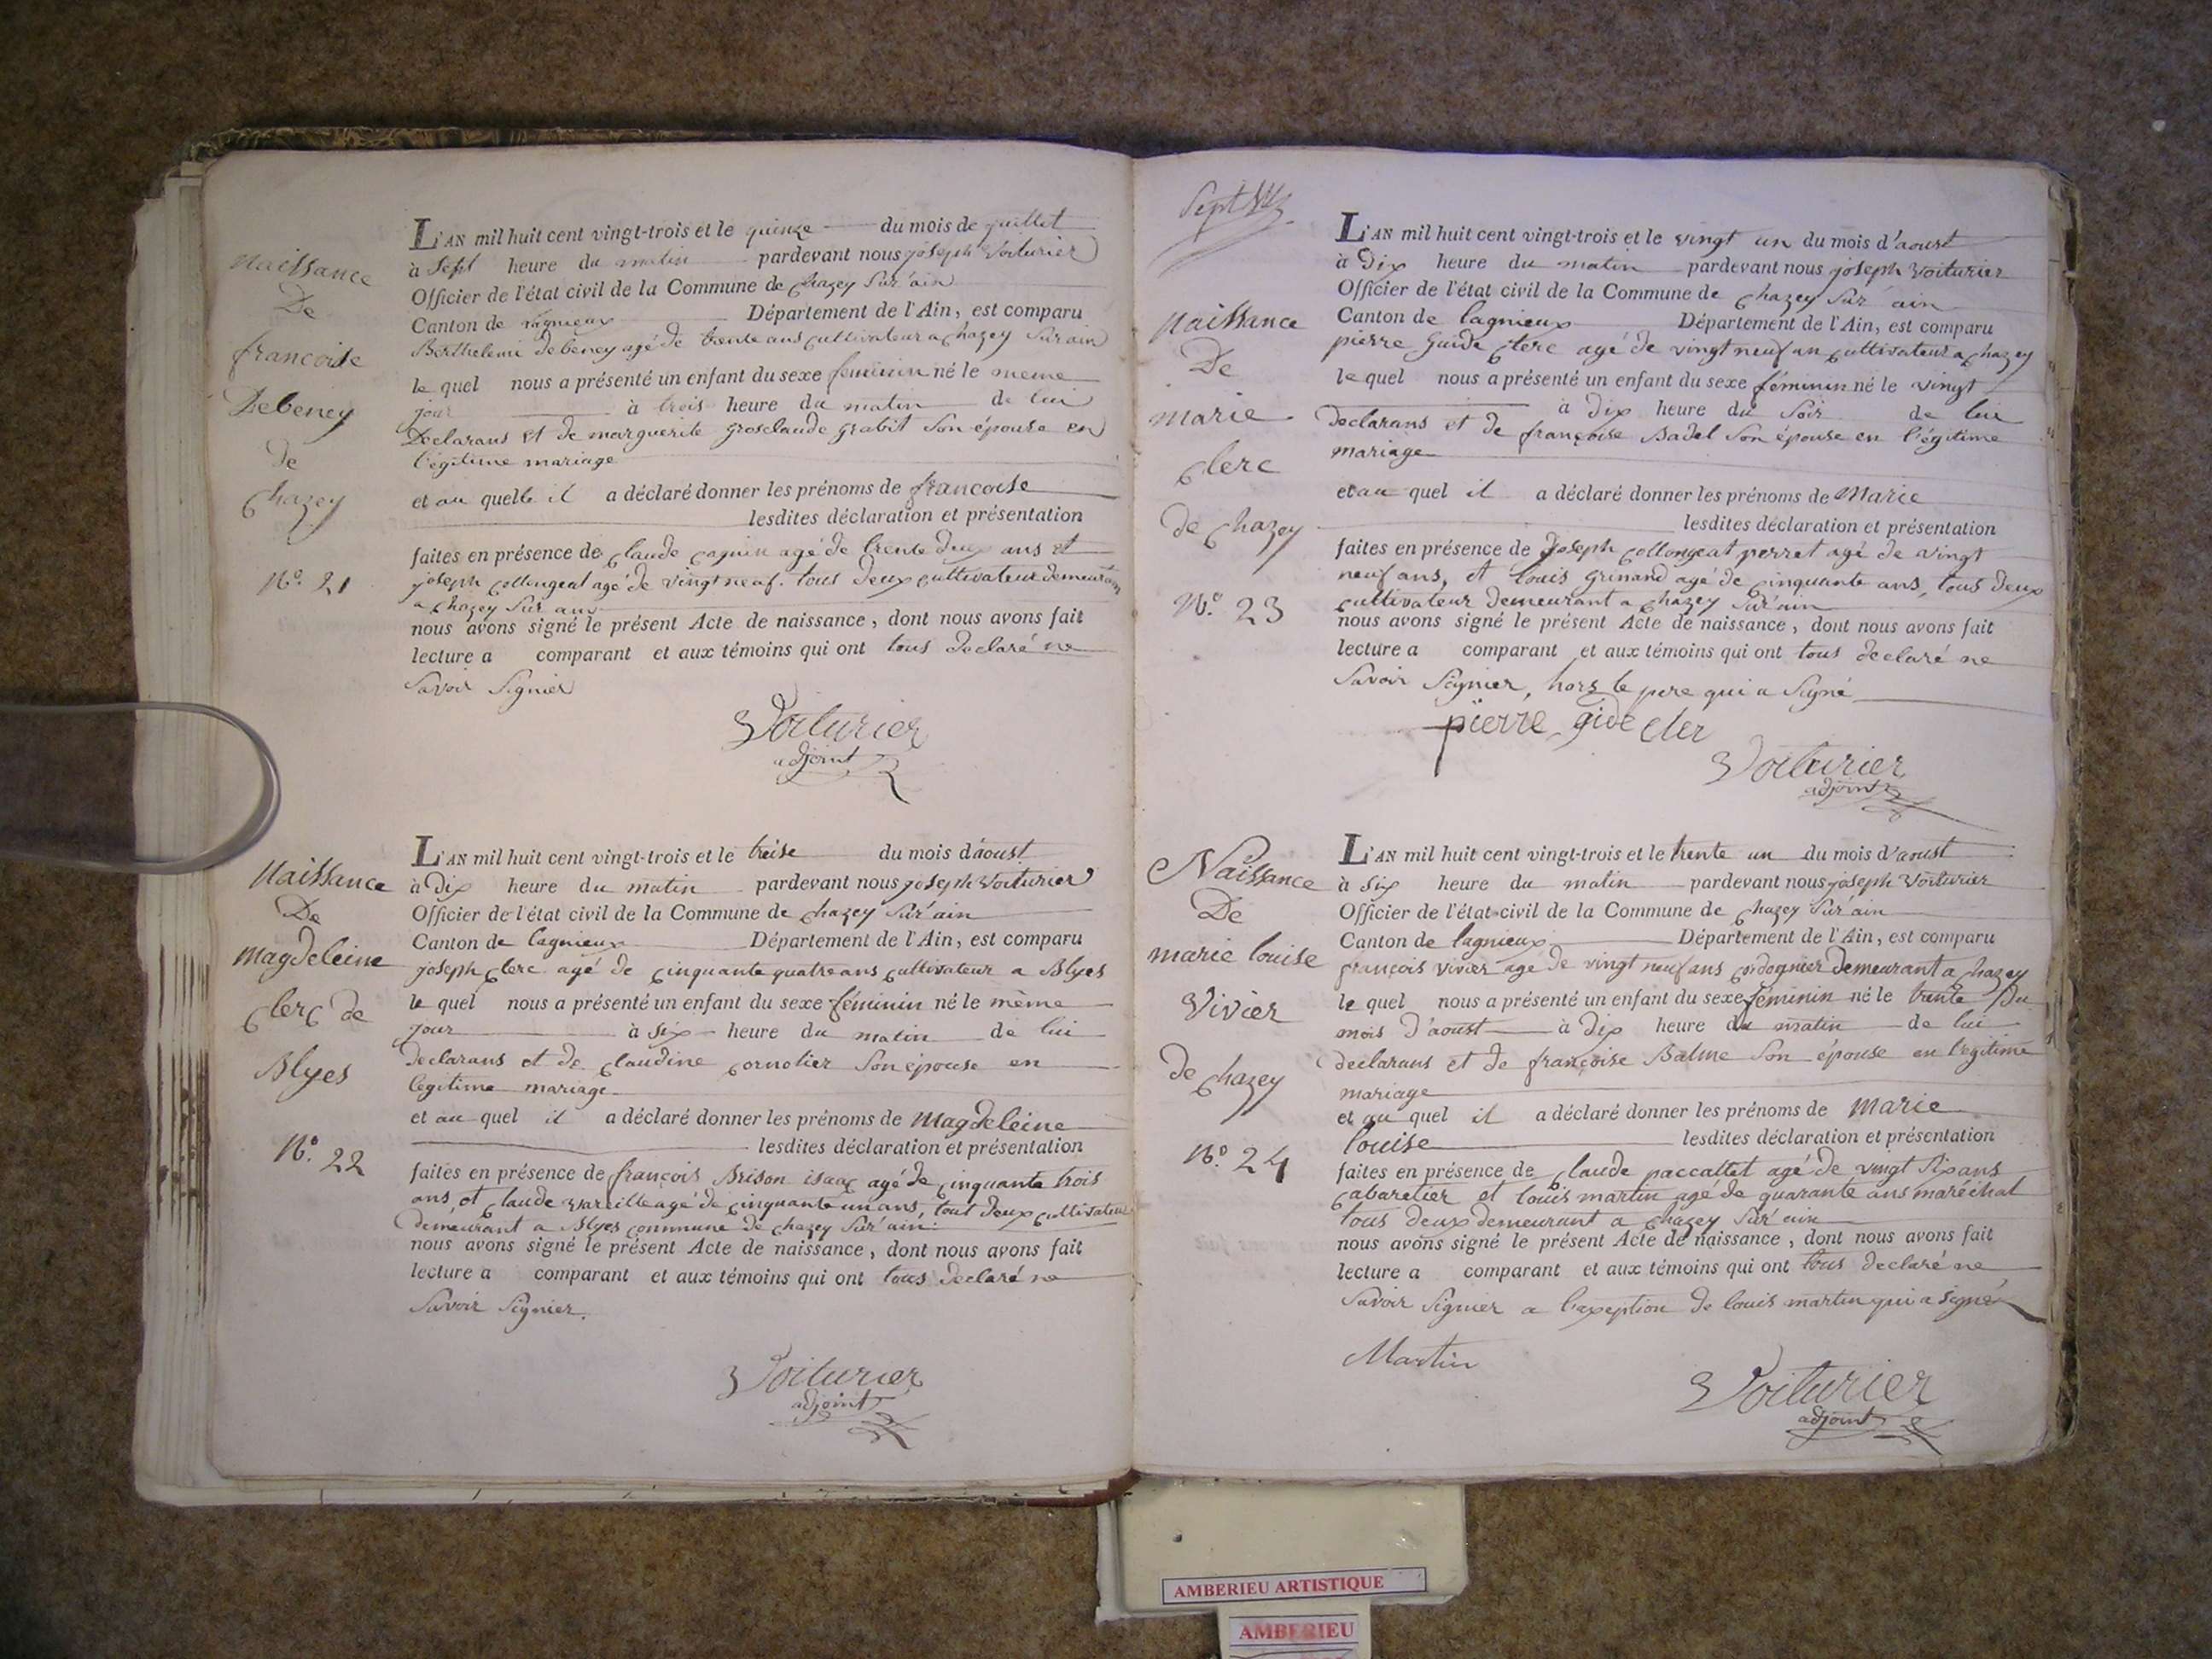 Naissance
De
francoise
Debeney
de
Chazey
N.° 21
L'AN mil huit cent vingt-trois et le quinze du mois de juillet
à Sept heure du matin pardevant nous joseph Voiturier
Officier de l'état civil de la Commune de Chazey Sur ain
Canton de lagnieux Département de l'Ain, est comparu
Berthelemi debeney agé de trente ans cultivateur a Chazey Sur ain
le quel nous a présenté un enfant du sexe feminin né le meme
jour à trois heure du matin de lui
Declarans et de marguerite Grosclaude Grabit Son épouse en
légitime mariage
et au quelle il a déclaré donner les prénoms de francoise
lesdites déclaration et présentation
faites en présence de Claude Cagnin agé de trente deux ans et
joseph Collongeat agé de vingt neuf. tous deux cultivateur demeurant
a Chazey Sur ain
nous avons signé le présent Acte de naissance, dont nous avons fait
lecture a comparant et aux témoins qui ont tous declaré ne
Savoir Signier
Voiturier
adjoint
Naissance
De
magdeleine
Clerc de
Blyes
N.° 22
L'AN mil huit cent vingt-trois et le treise du mois d'aoust
à Dix heure du matin pardevant nous joseph Voiturier
Officier de l'état civil de la Commune de Chazey Sur ain
Canton de lagnieux Département de l'Ain, est comparu
joseph Clerc agé de Cinquante quatre ans Cultivateur a Blyes
le quel nous a présenté un enfant du sexe féminin né le mème
jour à Six heure du matin de lui
Declarans et de Claudine Cornolier Son épouse en
legitime mariage
et au quel il a déclaré donner les prénoms de Magdeleine
lesdites déclaration et présentation
faites en présence de françois Brison isaac agé de Cinquante trois
ans, et Claude Vareille agé de Cinquante un ans, tout deux Cultivateur
demeurant a Blyes Commune de Chazey Sur ain.
nous avons signé le présent Acte de naissance, dont nous avons fait
lecture a comparant et aux témoins qui ont tous declaré ne
Savoir Signier.
Voiturier
adjoint
Naissance
De
marie
Clerc
de Chazey
N.° 23
L'AN mil huit cent vingt-trois et le vingt un du mois d'aoust
à Dix heure du matin pardevant nous joseph Voiturier
Officier de l'état civil de la Commune de Chazey Sur ain
Canton de lagnieux Département de l'Ain, est comparu
pierre Guide Clerc agé de vingt neuf an Cultivateur a Chazey
le quel nous a présenté un enfant du sexe féminin né le vingt
à dix heure du Soir de lui
Declarans et de françoise Badel Son épouse en légitime
mariage
et au quel il a déclaré donner les prénoms de Marie
lesdites déclaration et présentation
faites en présence de Joseph Collongeat perret agé de vingt
neuf ans, et louis Grinand agé de Cinquante ans, tous deux
Cultivateur demeurant a Chazey Sur ain
nous avons signé le présent Acte de naissance, dont nous avons fait
lecture a comparant et aux témoins qui ont tous declaré ne
Savoir Signier, hors le pere qui a Signé
pierre gide cler
Voiturier
adjoint
Naissance
De
marie louise
Vivier
de Chazey
N.° 24
L'AN mil huit cent vingt-trois et le trente un du mois d'aoust
à Six heure du matin pardevant nous joseph Voiturier
Officier de l'état civil de la Commune de Chazey Sur ain
Canton de lagnieux Département de l'Ain, est comparu
françois vivier agé de vingt neuf ans Cordognier demeurant a Chazey
le quel nous a présenté un enfant du sexe féminin né le trente du
mois d'aoust à dix heure du matin de lui
declarans et de françoise Balme Son épouse en legitime
mariage
et au quel il a déclaré donner les prénoms de Marie
louise lesdites déclaration et présentation
faites en présence de Claude paccallet agé de vingt Six ans
Cabaretier et louis martin agé de quarante ans maréchal
tous deux demeurant a Chazey Sur ain
nous avons signé le présent Acte de naissance, dont nous avons fait
lecture a comparant et aux témoins qui ont tous declaré ne
Savoir Signier a l'exeption de louis martin qui a signé
Martin
Voiturier
adjoint
AMBERIEU ARTISTIQUE
AMBERIEU